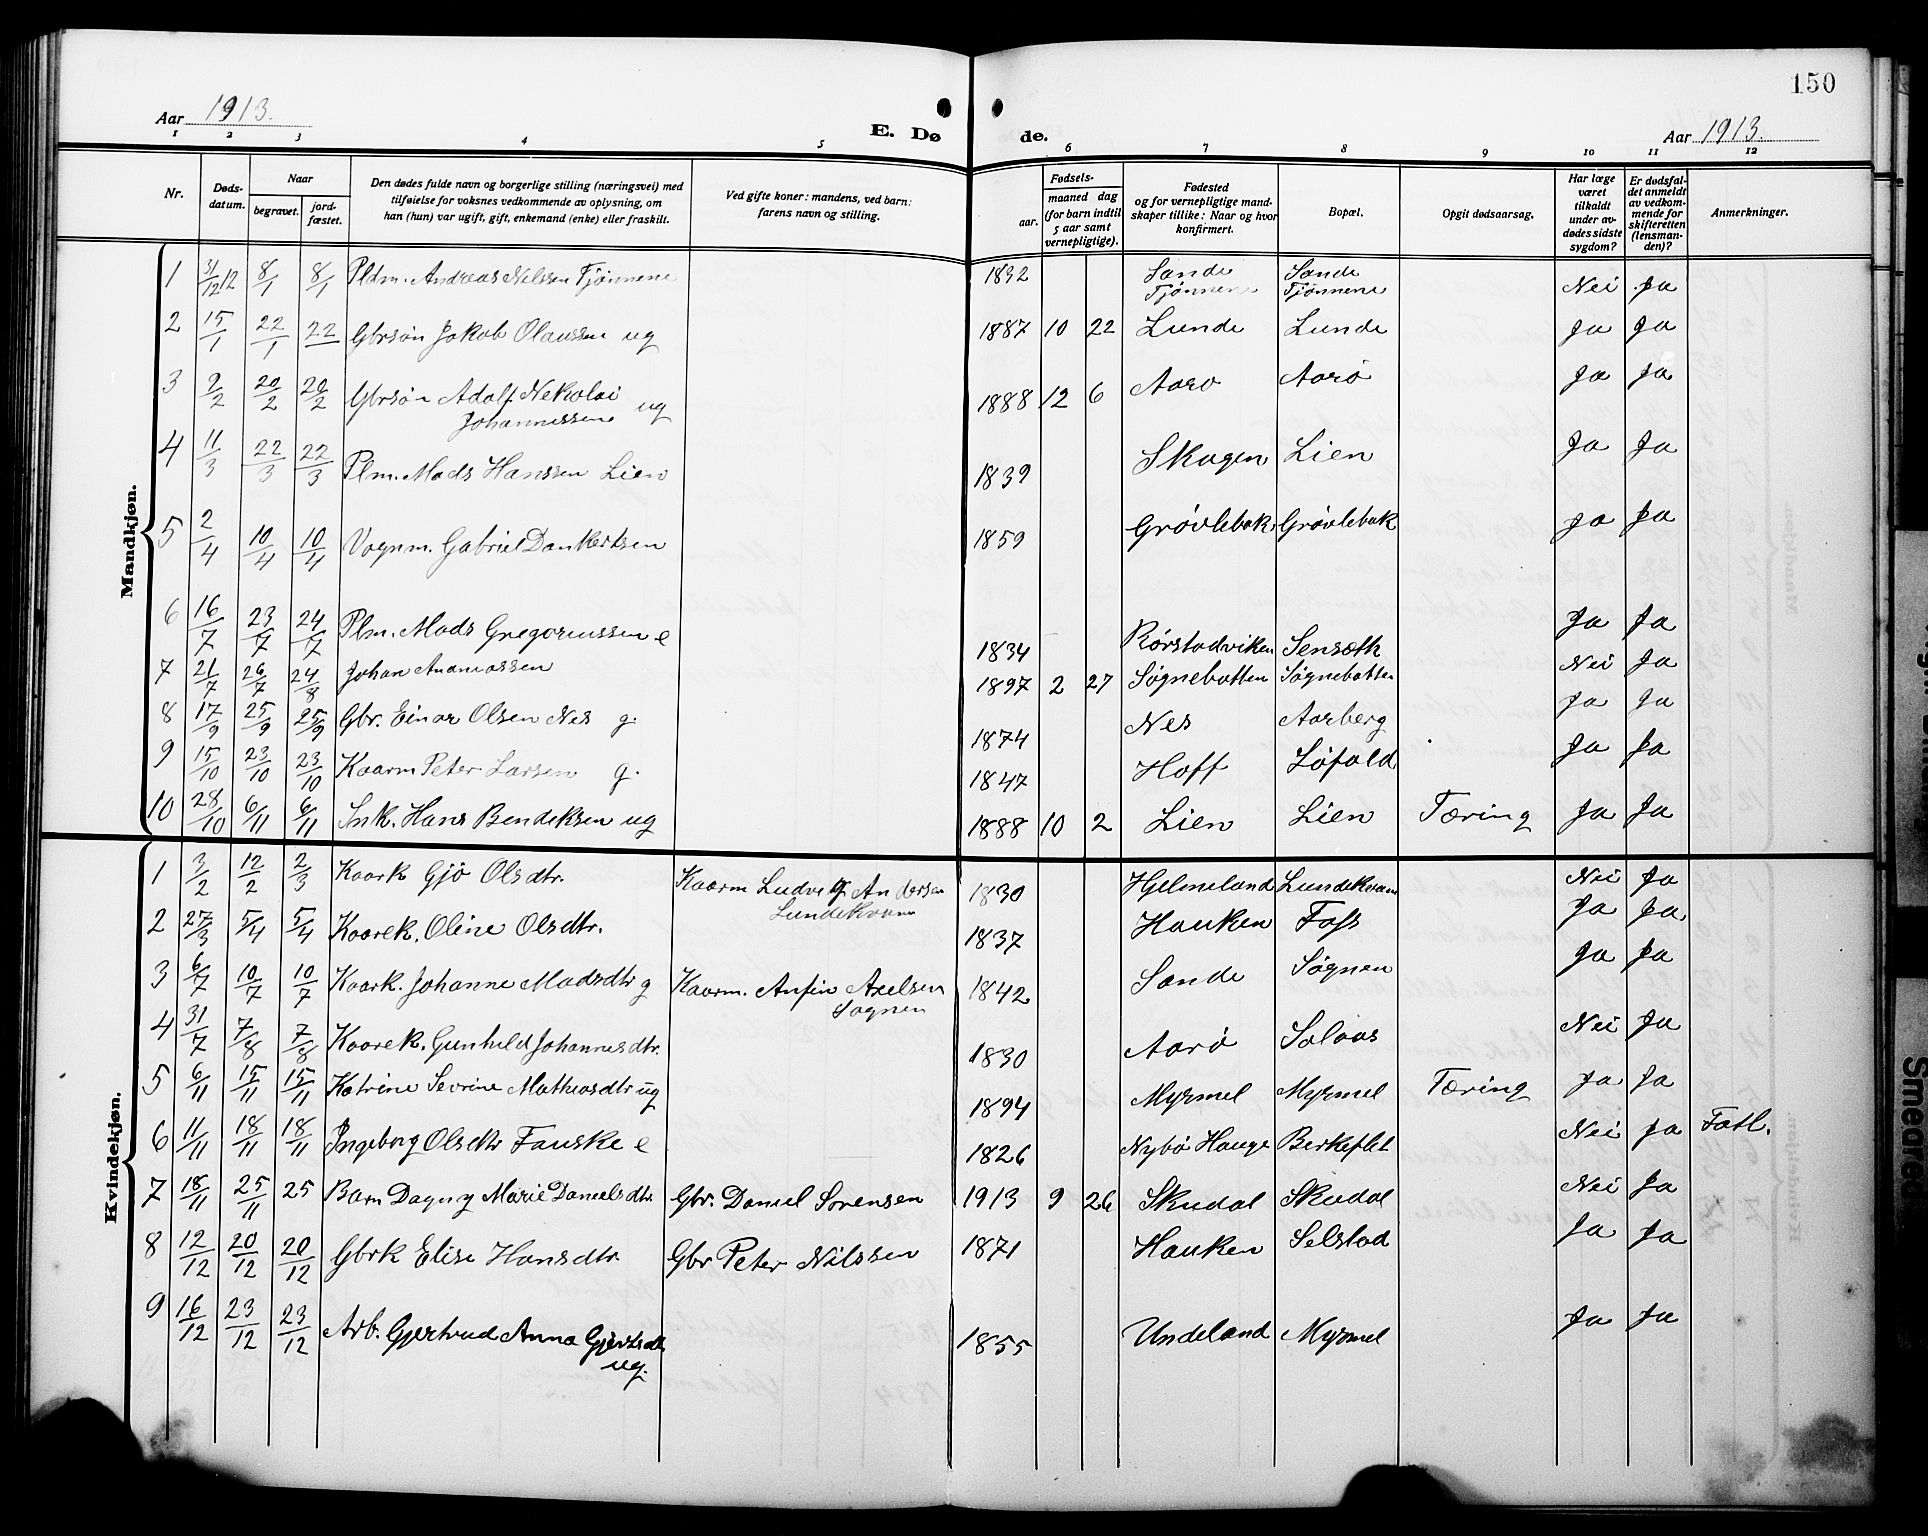 150
Aar 1913.
E. Dø de.
Aar 1913.
1 2 3 4 5 6 7 8 9 10 11 12
Nr.
Døds-
datum.
Naar
begravet.
jord-
fæstet.
Den dødes fulde navn og borgerlige stilling (næringsvei) med
tilføielse for voksnes vedkommende av oplysning, om
han (hun) var ugift, gift, enkemand (enke) eller fraskilt.
Ved gifte koner: mandens, ved barn:
farens navn og stilling.
Fødsels-
aar. maaned dag
(for barn indtil
5 aar samt
vernepligtige).
Fødested
og for vernepligtige mand-
skaper tillike: Naar og hvor
konfirmert.
Bopæl.
Opgit dødsaarsag.
Har læge
været
tilkaldt
under av-
dødes sidste
sygdom?
Er dødsfal-
det anmeldt
av vedkom-
mende for
skifteretten
(lensman-
den)?
Anmerkninger.
Mandkjøn.
1 31/12 12 8/1 8/1 Pldm. Andreas Nilssen Tjønnene 1832 Sande Tjønnene Sande Tjønnene Nei Ja
2 15/1 22/1 22 Gbrsøn Jakob Olaussen ug 1887 10 22 Lunde Lunde Ja Ja
3 9/2 20/2 20/2 Gbrsøn Adolf Nekolai
Johannessen ug 1888 12 6 Aarø Aarø Ja Ja
4 11/3 22/3 22/3 Plm. Mads Hanssen Lien 1839 Skogen Lien Ja Ja
5 2/4 10/4 10/4 Vognm. Gabriel Dankertsen 1859 Grøvlebak Grøvlebak Ja Ja
6 16/7 23/7 24/7 Plm. Mads Gregoriussen e 1834 Rørstadviken Sensæth Ja Ja
7 21/7 26/7 24/8 Johan Ananiassen 1897 2 27 Søgnebotten Søgnebotten Nei Ja
8 17/9 25/9 25/9 Gbr. Einar Olsen Nes g. 1874 Nes Aarberg Ja Ja
9 15/10 23/10 23/10 Kaarm Peter Larsen g. 1847 Hoff Løfald Ja Ja
10 28/10 6/11 6/11 Snk. Hans Bendeksen ug 1888 10 2 Lien Lien Tæring Ja Ja
Kvindekjøn.
1 3/2 12/2 2/3 Kaark Gjø Olsdtr. Kaarm Ludvig Andersen
Lundekvam 1830 Hjelmeland Lundekvam Nei Ja
2 27/3 5/4 5/4 Kaarek. Oline Olsdtr. 1837 Hauken Foss Ja Ja
3 6/7 10/7 10/7 Kaark. Johanne Madsdtr g Kaarm. Anfin Axelsen
Søgnen 1842 Sande Søgnen Ja Ja
4 31/7 7/8 7/8 Kaarek. Gunhild Johannesdtr. 1830 Aarø Solaas Nei Ja
5 6/11 15/11 15/11 Katrine Sevrine Mathiasdtr ug 1894 Myrmel Myrmel Tæring Ja Ja
6 11/11 18/11 18/11 Ingeborg Olsdtr Fauske e 1826 Nybø Hauge Berkeflet Nei Ja Fatl.
7 18/11 25/11 25 Barn Dagny Marie Danielsdtr. Gbr. Daniel Sørensen 1913 9 26 Skudal Skudal Nei Ja
8 12/12 20/12 20/12 Gbrk Elise Hansdtr. Gbr Peter Nilssen 1871 Hauken Selstad Ja Ja
9 16/12 23/12 23/12 Arb. Gjertrud Anna Gjertsdtr
ug. 1855 Undeland Myrmel Ja Ja